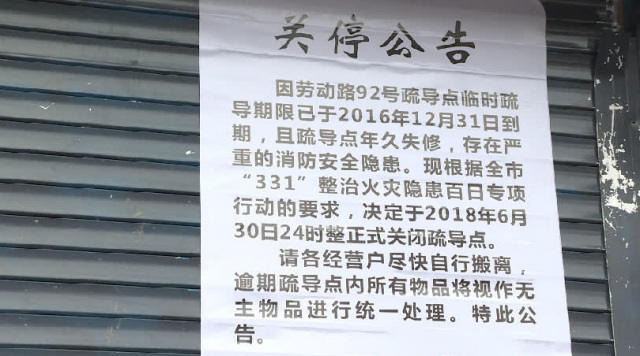 关停公告
因劳动路92号疏导点临时疏
导期限已于2016年12月31日到
期，且疏导点年久失修，存在严
重的消防安全隐患。现根据全市
“331”整治火灾隐患百日专项
行动的要求，决定于2018年6月
30日24时整正式关闭疏导点。
请各经营户尽快自行搬离，
逾期疏导点内所有物品将视作无
主物品进行统一处理。特此公
告。